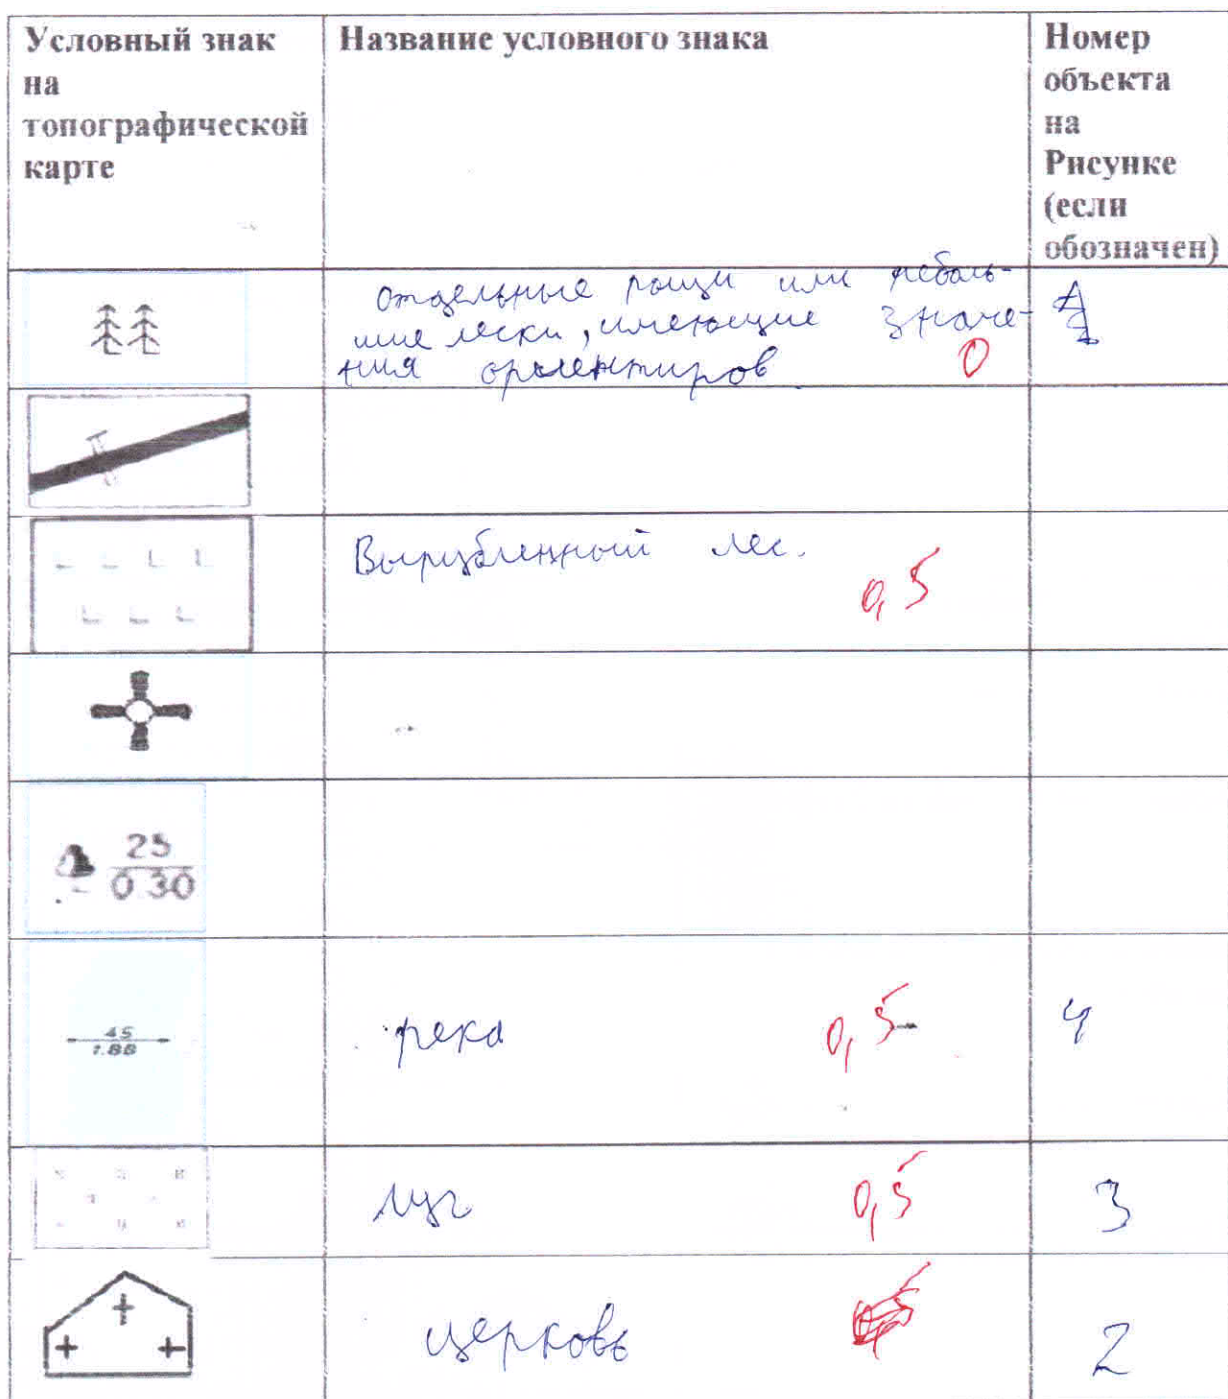 Условный знак
на
топографической
карте
Название условного знака
Номер
объекта
на
Рисунке
(если
обозначен)
отдельные рощи или неболь-
шие лески, имеющие значе-
ния ориентиров
0
Вырубленный лес.
0,5
25
0.30
45
1.8В
река
0,5
4
луг
0,5
3
церковь
2